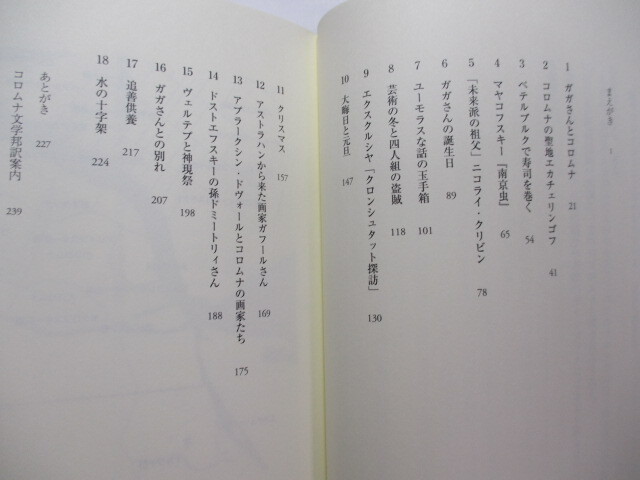 まえがき 1
1 ガガさんとコロムナ 21
2 コロムナの聖地エカチェリンゴフ 41
3 ペテルブルクで寿司を巻く 54
4 マヤコフスキー『南京虫』 65
5 「未来派の祖父」ニコライ・クリビン 78
6 ガガさんの誕生日 89
7 ユーモラスな話の玉手箱 101
8 芸術の冬と四人組の盗賊 118
9 エクスクルシヤ「クロンシュタット探訪」 130
10 大晦日と元旦 147
11 クリスマス 157
12 アストラハンから来た画家ガフールさん 169
13 アプラークシン・ドヴォールとコロムナの画家たち 175
14 ドストエフスキーの孫ドミートリィさん 188
15 ヴェルテプと神現祭 198
16 ガガさんとの別れ 207
17 追善供養 217
18 水の十字架 224
あとがき 227
コロムナ文学邦訳案内 239